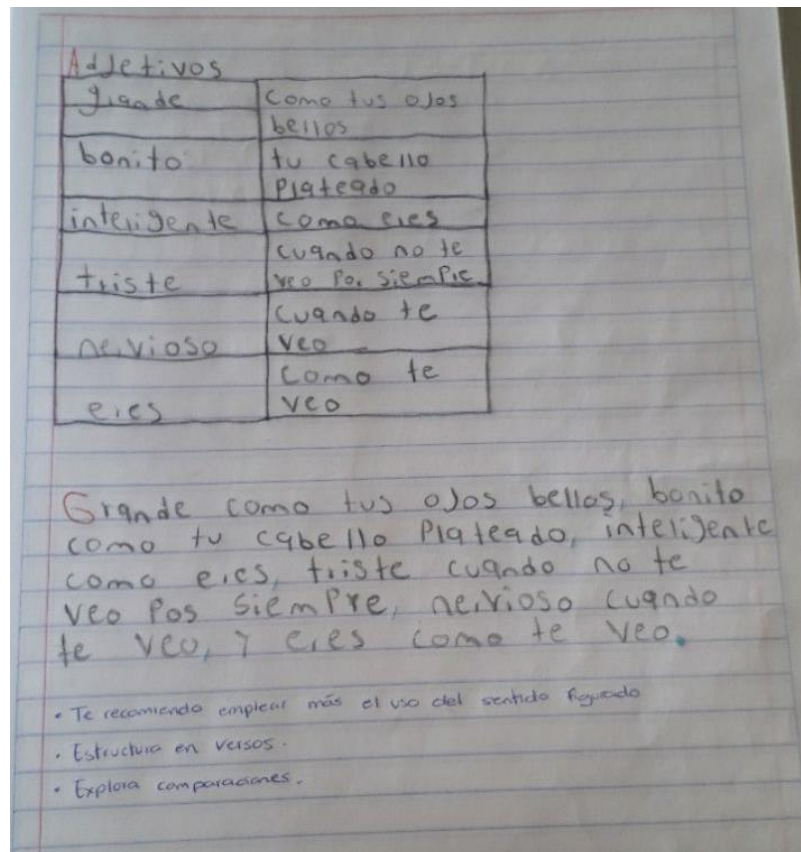 Adjetivos
grande como tus ojos
bellos
bonito tu cabello
Plateado
inteligente como eres
cuando no te
triste veo Por siempre
cuando te
nervioso veo
como te
eres veo
Grande como tus ojos bellos, bonito
como tu cabello Plateado, inteligente
como eres, triste cuando no te
veo Pos siemPre, nervioso cuando
te veo, y eres como te veo.
• Te recomiendo emplear más el uso del sentido figurado
• Estructura en versos.
• Explora comparaciones.